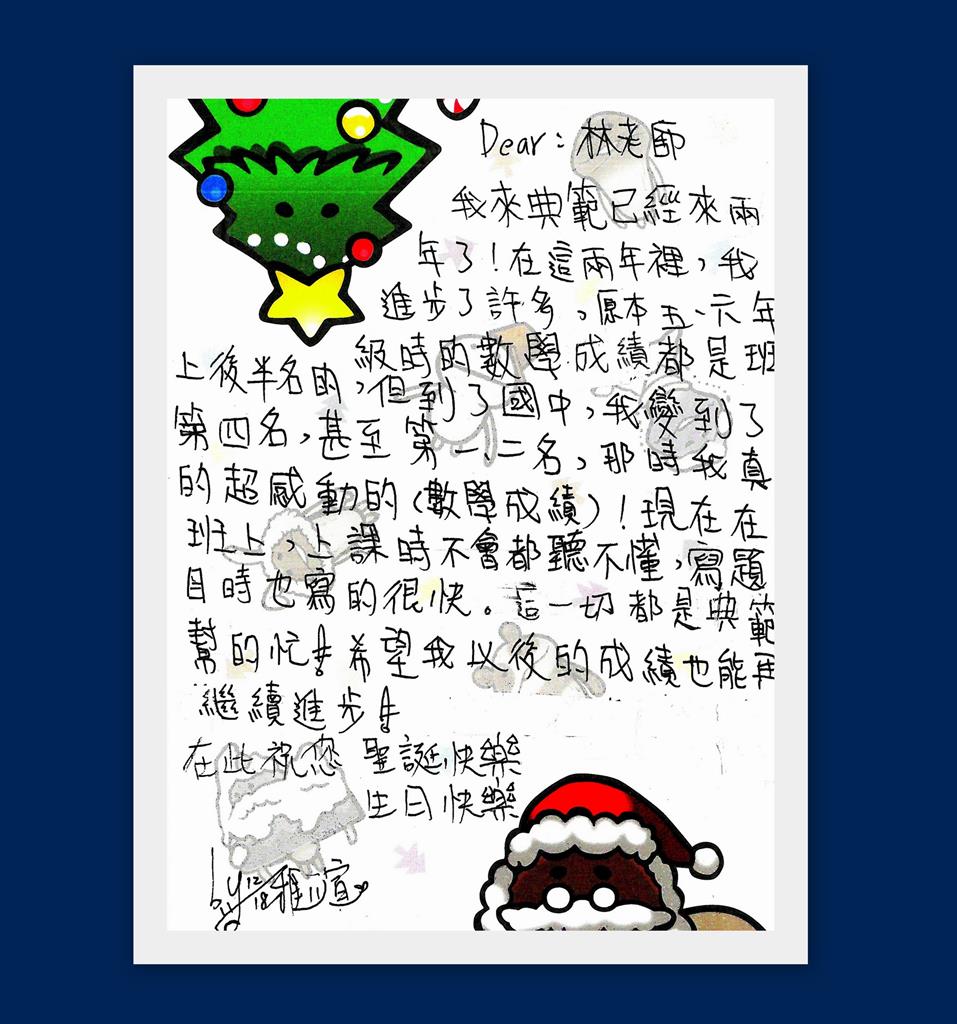 Dear：林老師
我來典範已經來兩
年了！在這兩年裡，我
進步了許多，原本五、六年
級時的數學成績都是班
上後半名的，但到了國中，我變到了
第四名，甚至第一、二名，那時我真
的超感動的(數學成績)！現在在
班上，上課時不會都聽不懂，寫題
目時也寫的很快。這一切都是典範
幫的忙！希望我以後的成績也能再
繼續進步！
在此祝您 聖誕快樂
生日快樂
by 雅宣 12/18